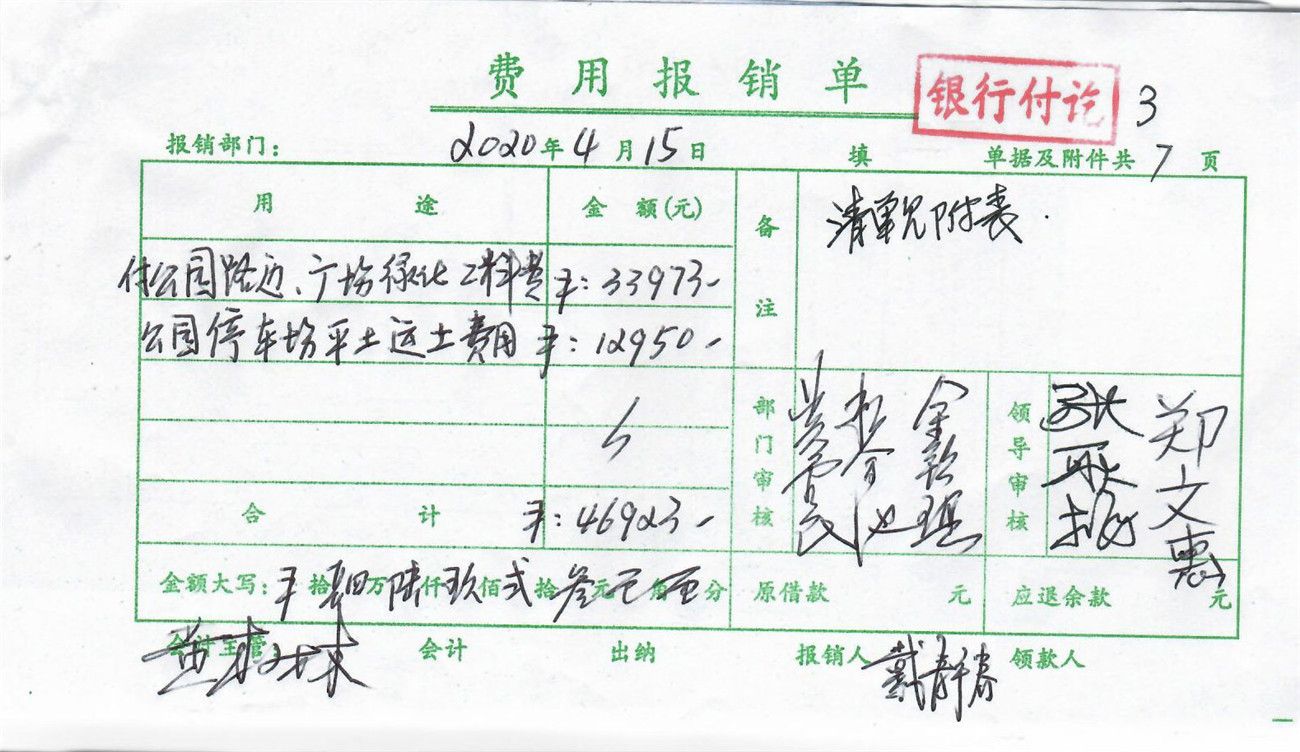 费用报销单 银行付讫 3
报销部门： 2020年4月15日 填 单据及附件共7页
用途 金额(元) 备注 清单见附表.
付公园路边、广场绿化工料费 ¥:33973-
公园停车场平土运土费用 ¥:12950-
部门审核 领导审核 郑文惠
合计 ¥:46923-
金额大写: ¥拾肆万陆仟玖佰弍拾叁元 角 分 原借款 元 应退余款 元
会计主管: 会计 出纳 报销人 戴静春 领款人